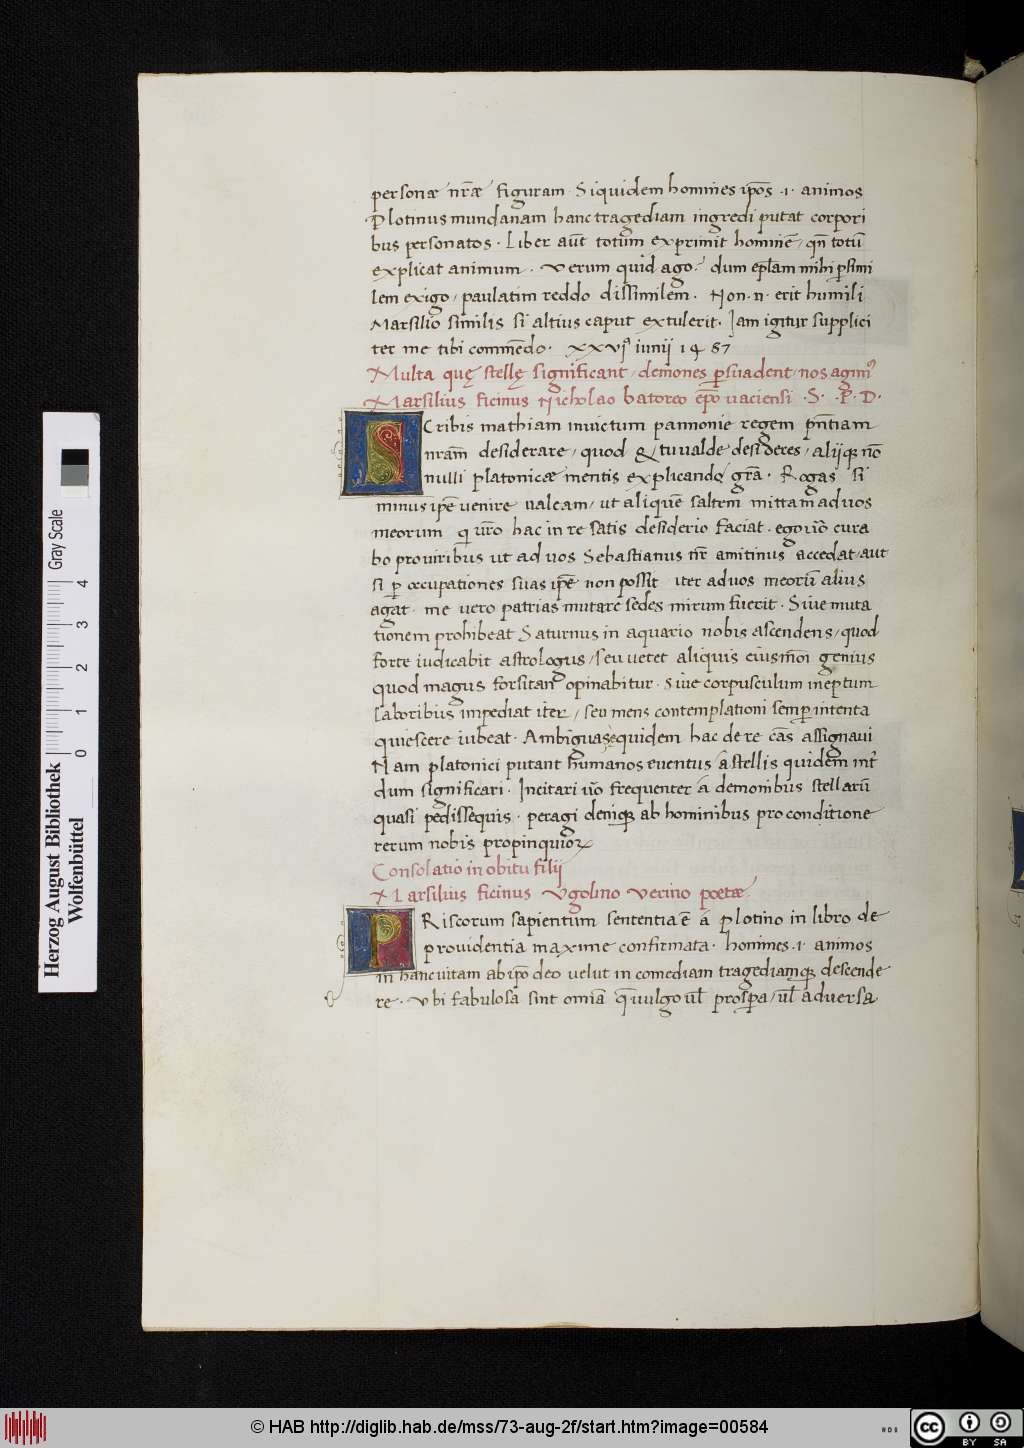 personæ nr̃æ figuram. Siquidem homines ip̃os .i. animos
Plotinus mundanam hanc tragediam ingredi putat corpori
bus personatos. Liber aũt totum exprimit hominẽ, qñ totũ
explicat animum. Verum quid ago? dum ep̃lam mihi ꝑsimi
lem exigo, paulatim reddo dissimilem. Non .n. erit humili
Marsilio similis si altius caput extulerit. Iam igitur supplici
ter me tibi commẽdo. xxvj iunij 1487
Multa quę stellę significant, demones ꝑsuadent, nos agimꝰ
Marsilius ficinus Nicholao batoreo ep̃o vaciensi .S. .P. D.
SCribis mathiam inuictum pannonie regem pñtiam
nram̃ desiderare, quod & tu ualde desideres, alijq; nõ
nulli platonicæ mentis explicandę grã. Rogas si
minus ip̃e uenire ualeam, ut aliquẽ saltem mittam ad uos
meorum qui ur̃o hac in re satis desiderio faciat. ego uõ cura
bo pro uiribus ut ad uos Sebastianus nr̃ amitinus accedat, aut
si ꝑ occupationes suas ip̃e non possit iter ad uos meorũ alius
agat. me uero patrias mutare sedes mirum fuerit. Siue muta
tionem prohibeat Saturnus in aquario nobis ascendens, quod
forte iudicabit astrologus, seu uetet aliquis eiusmõi genius
quod magus forsitan opinabitur. siue corpusculum ineptum
laboribus impediat iter, seu mens contemplationi semꝑ intenta
quiescere iubeat. Ambiguas equidem hac de re cãs assignaui
Nam platonici putant humanos euentus á stellis quidem int̃
dum significari. Incitari uõ frequenter á demonibus stellarũ
quasi pedissequis. peragi deniq; ab hominibus pro conditione
rerum nobis propinquioꝝ
Consolatio in obitu filij
Marsilius ficinus Vgolino Verino poetæ.
PRiscorum sapientum sententia ẽ á Plotino in libro de
prouidentia maxime confirmata. homines .i. animos
in hanc uitam ab ip̃o deo uelut in comediam tragediamq; descende
re. Vbi fabulosa sint omĩa q̃ uulgo ul̃ prosꝑa, ul̃ aduersa
Herzog August Bibliothek
Wolfenbüttel
0 1 2 3 4
Gray Scale
© HAB http://diglib.hab.de/mss/73-aug-2f/start.htm?image=00584
cc BY SA